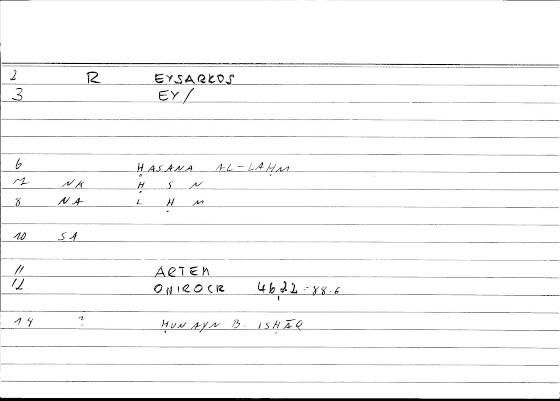 2 R EYSARKOS
3 EY/
6 ḤASANA AL-LAḤM
7 NK Ḥ S N
8 NA L Ḥ M
10 SA
11 ARTEM
12 ONIROCR 4622-88.6
14 ? ḤUNAYN B. ISḤĀQ